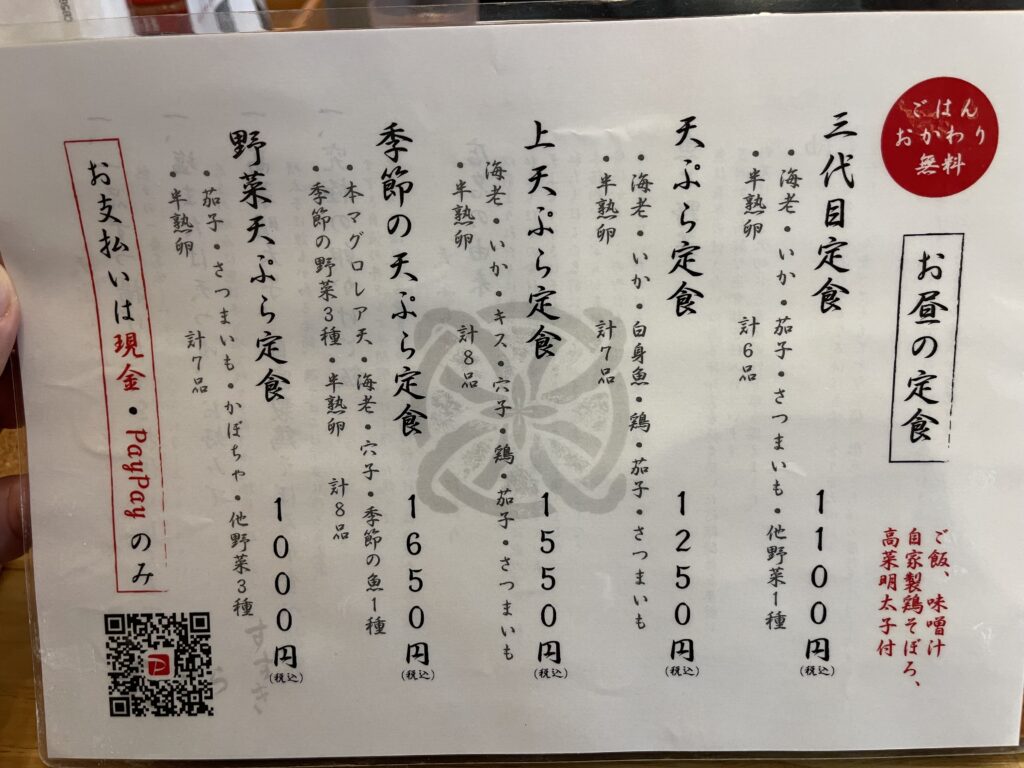 ごはん
おかわり
無料
お昼の定食
ご飯、味噌汁
自家製鶏そぼろ、
高菜明太子付
三代目定食 1100円(税込)
・海老・いか・茄子・さつまいも・他野菜1種
・半熟卵 計6品
天ぷら定食 1250円(税込)
・海老・いか・白身魚・鶏・茄子・さつまいも
・半熟卵 計7品
上天ぷら定食 1550円(税込)
海老・いか・キス・穴子・鶏・茄子・さつまいも
・半熟卵 計8品
季節の天ぷら定食 1650円(税込)
・本マグロレア天・海老・穴子・季節の魚1種
・季節の野菜3種・半熟卵 計8品
野菜天ぷら定食 1000円(税込)
・茄子・さつまいも・かぼちゃ・他野菜3種
・半熟卵 計7品
お支払いは現金・PayPayのみ